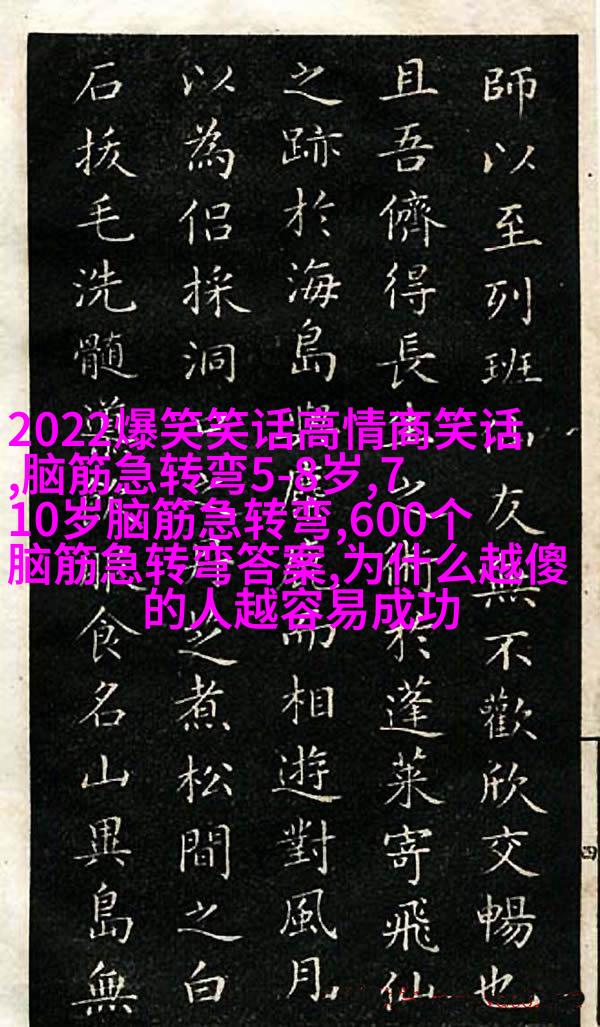 2022爆笑笑话高情商笑话
,脑筋急转弯5-8岁,7
10岁脑筋急转弯,600个
脑筋急转弯答案,为什么越傻
的人越容易成功
師以至列班仙友無不歡欣交暢也
且吾儕得長生之術於蓬萊寄飛仙
之跡於海島與而相遊對風月
以為侣採洞之煮松間之白
石拔毛洗髓食名山異島無
四